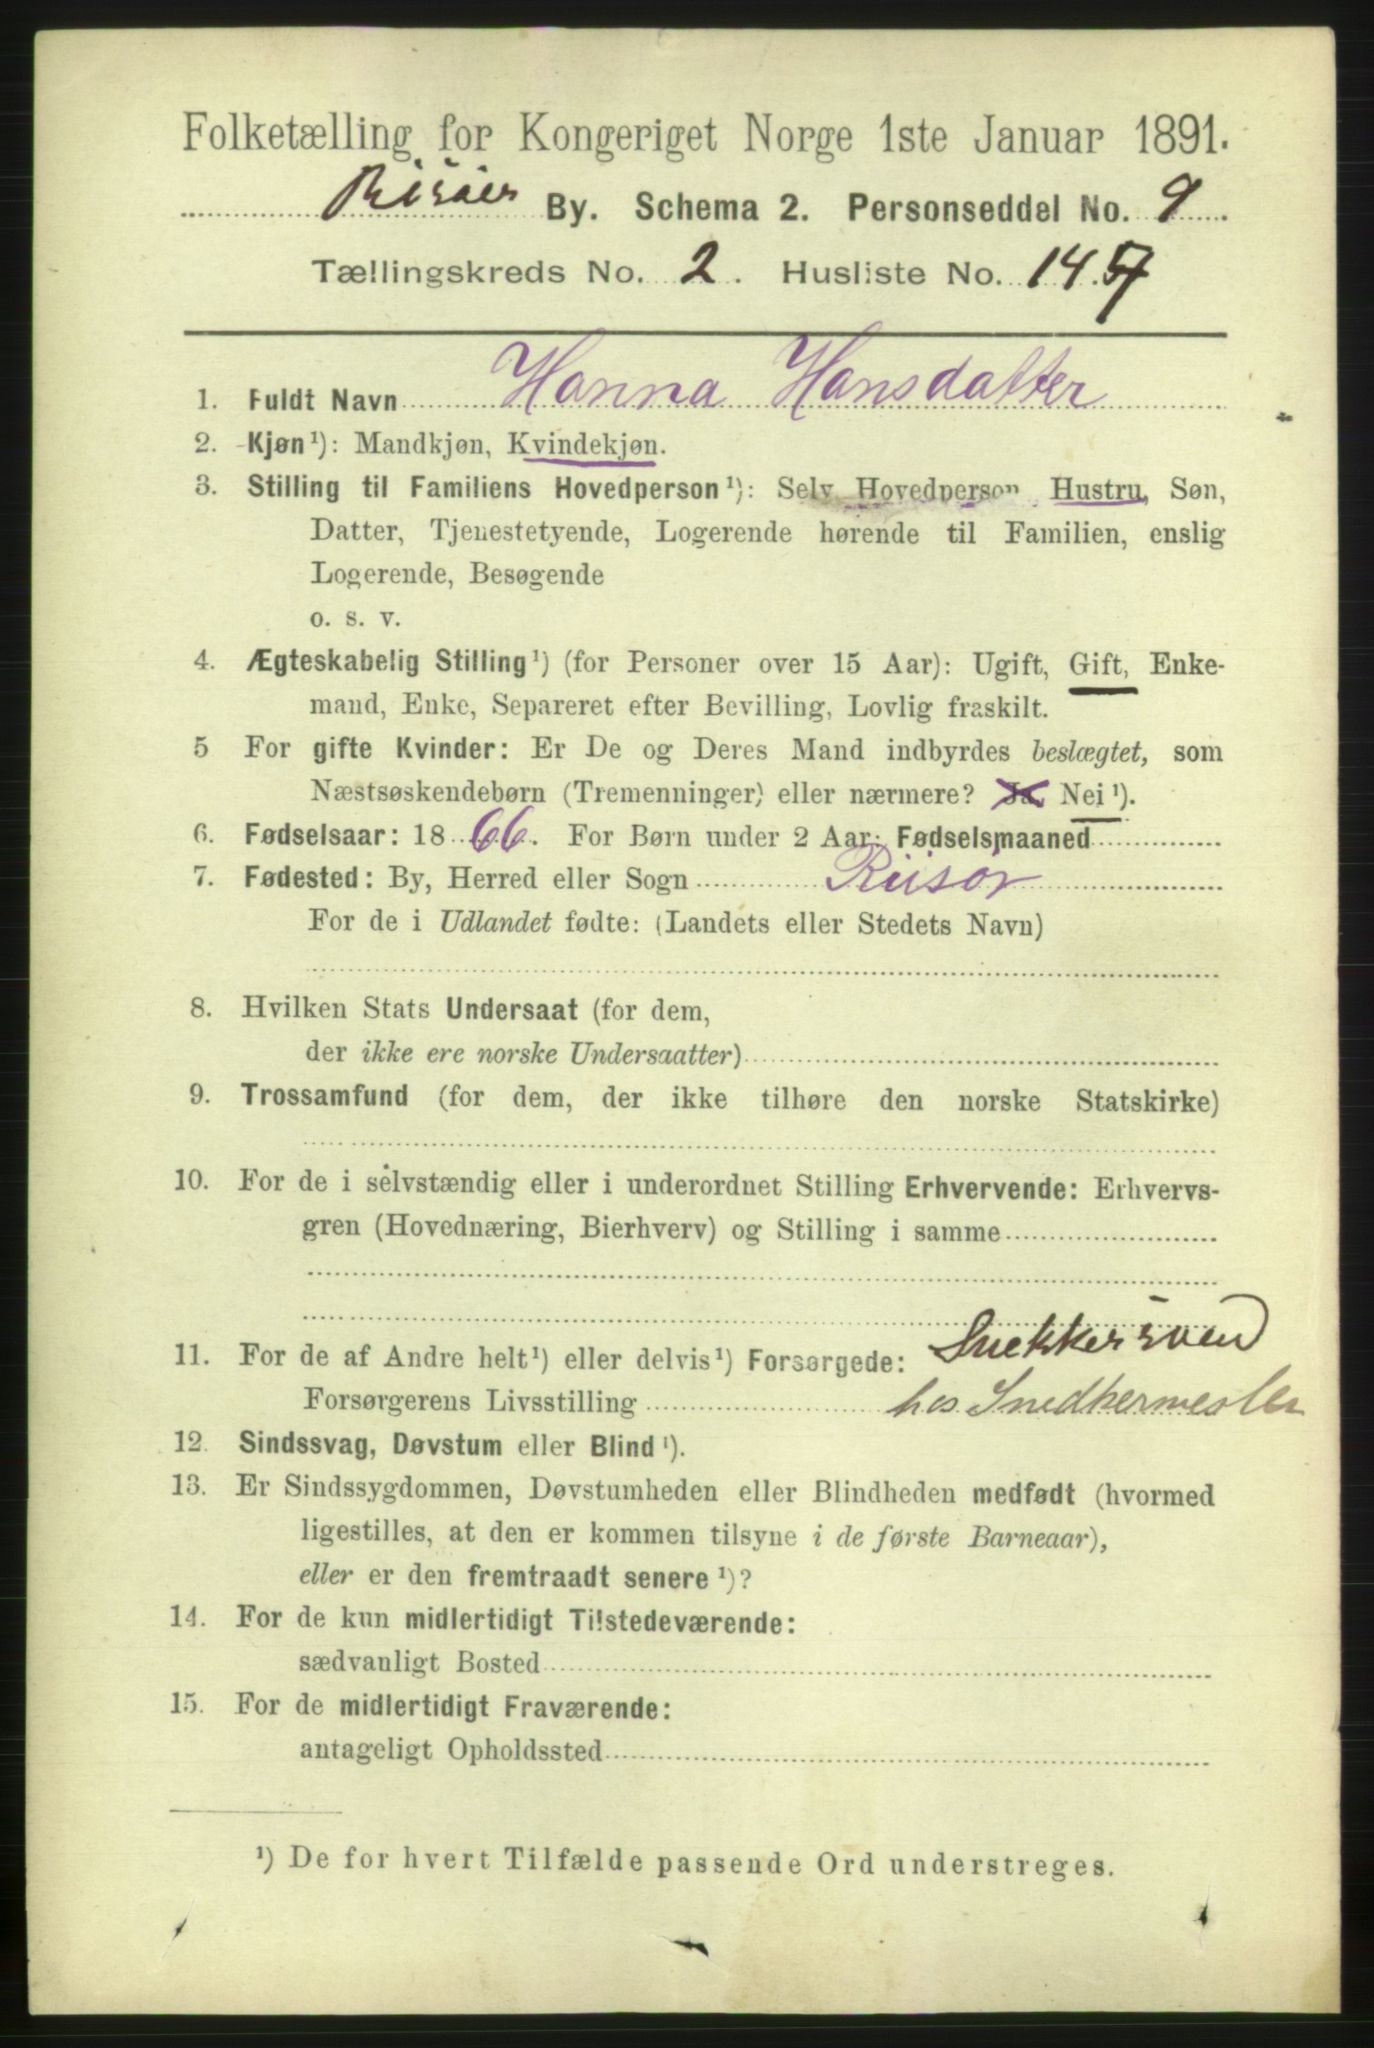 Folketælling for Kongeriget Norge 1ste Januar 1891.
Risöer By. Schema 2. Personseddel No. 9.
Tællingskreds No. 2. Husliste No. 14.
1. Fuldt Navn Hanna Hansdatter
2. Kjøn¹): Mandkjøn, Kvindekjøn.
3. Stilling til Familiens Hovedperson¹): Selv Hovedperson, Hustru, Søn,
Datter, Tjenestetyende, Logerende hørende til Familien, enslig
Logerende, Besøgende
o. s. v.
4. Ægteskabelig Stilling¹) (for Personer over 15 Aar): Ugift, Gift, Enke-
mand, Enke, Separeret efter Bevilling, Lovlig fraskilt.
5 For gifte Kvinder: Er De og Deres Mand indbyrdes beslægtet, som
Næstsøskendebørn (Tremenninger) eller nærmere? Ja, Nei¹).
6. Fødselsaar: 1866. For Børn under 2 Aar: Fødselsmaaned
7. Fødested: By, Herred eller Sogn Riisör
For de i Udlandet fødte: (Landets eller Stedets Navn)
8. Hvilken Stats Undersaat (for dem,
der ikke ere norske Undersaatter)
9. Trossamfund (for dem, der ikke tilhøre den norske Statskirke)
10. For de i selvstændig eller i underordnet Stilling Erhvervende: Erhvervs-
gren (Hovednæring, Bierhverv) og Stilling i samme
11. For de af Andre helt¹) eller delvis¹) Forsørgede: Snekkersvend
Forsørgerens Livsstilling hos Snedkermester
12. Sindssvag, Døvstum eller Blind¹).
13. Er Sindssygdommen, Døvstumheden eller Blindheden medfødt (hvormed
ligestilles, at den er kommen tilsyne i de første Barneaar),
eller er den fremtraadt senere¹)?
14. For de kun midlertidigt Tilstedeværende:
sædvanligt Bosted
15. For de midlertidigt Fraværende:
antageligt Opholdssted
¹) De for hvert Tilfælde passende Ord understreges.